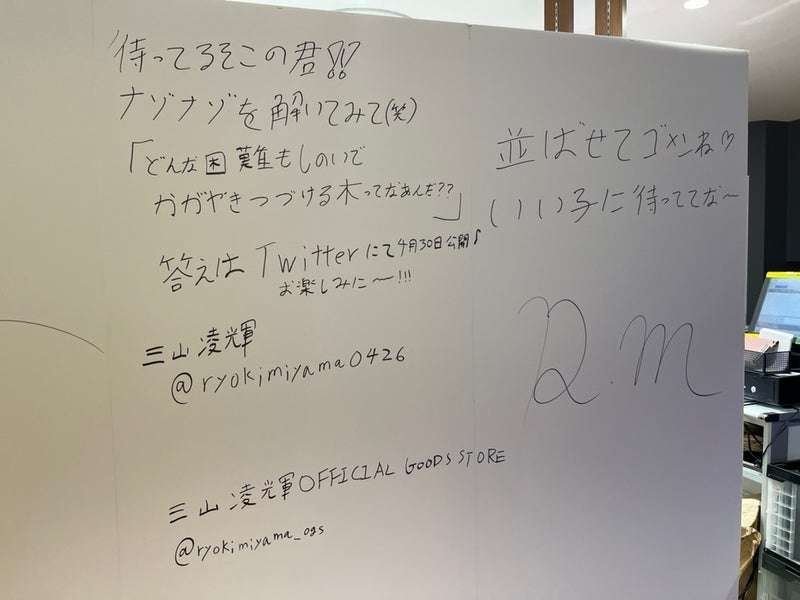 待ってるそこの君!!
ナゾナゾを解いてみて(笑)
「どんな困難もしのいで
かがやきつづける木ってなあんだ??」
答えはTwitterにて4月30日公開♪
お楽しみに〜!!!
三山凌輝
@ryokimiyama0426
三山凌輝OFFICIAL GOODS STORE
@ryokimiyama_ogs
並ばせてゴメンね♡
いい子に待っててな〜
R.m